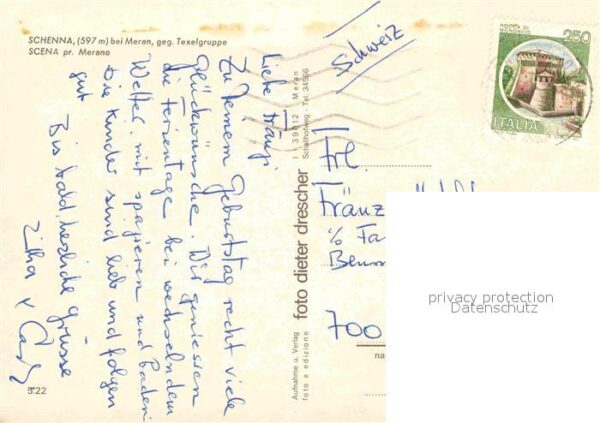 SCHENNA, (597 m) bei Meran, geg. Texelgruppe
SCENA pr. Merano
Liebe Fränzi
Zu Deinem Geburtstag recht viele
Glückwünsche. Wir geniessen
die Ferientage bei wechselndem
Wetter mit spazieren und baden
Die Kinder sind lieb und folgen
gut
Bis bald, herzliche Grüsse
5.22
Aufnahme u. Verlag
foto e edizione
foto dieter drescher
I 39012 Meran
Schallhofweg - Tel. 34566
Schweiz
250
ITALIA
Frl.
Fränz
c/o Fa
700
na
privacy protection
Datenschutz